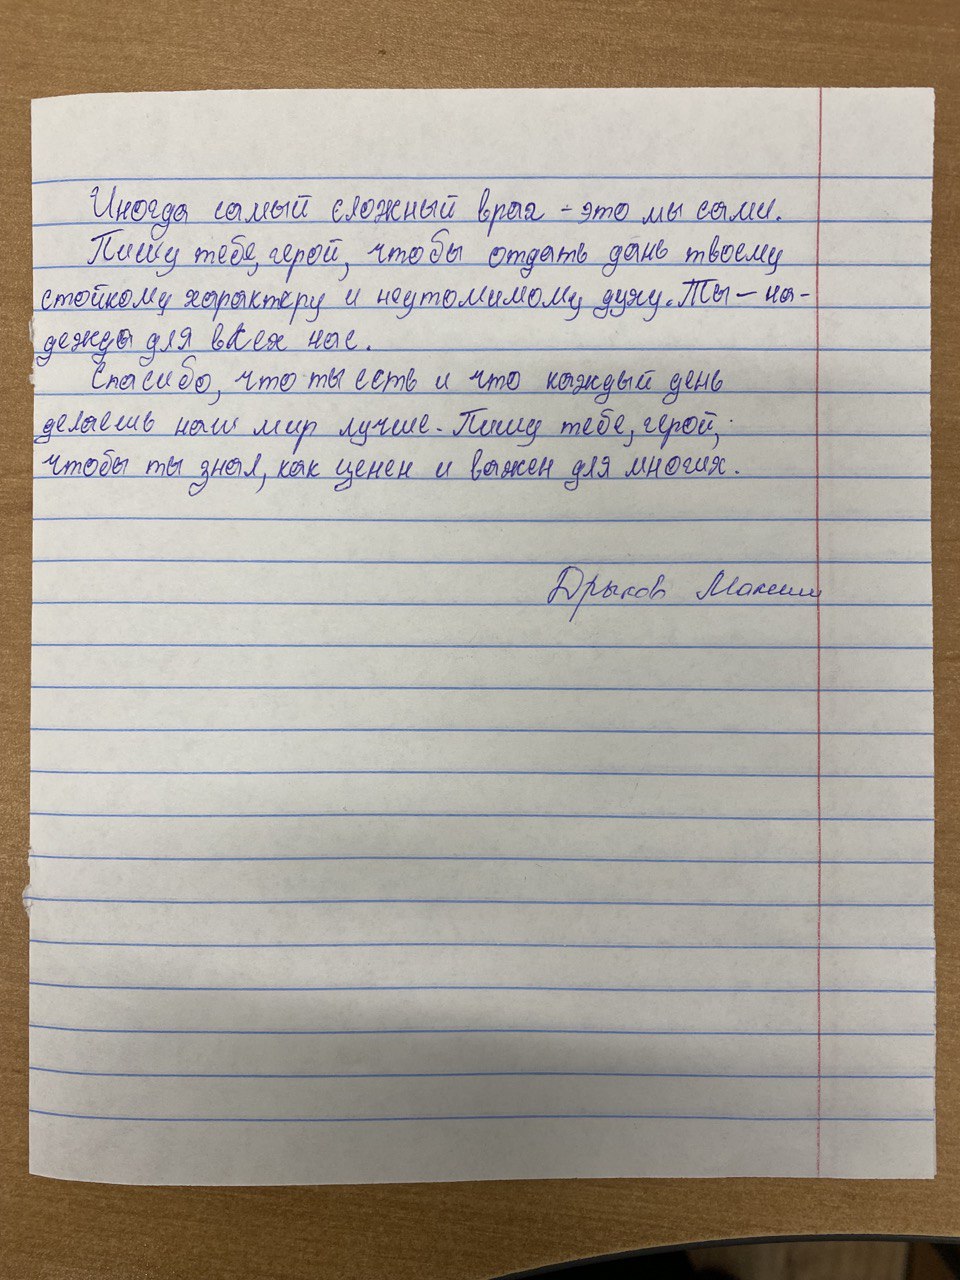 Иногда самый сложный враг - это мы сами.
Пишу тебе, герой, чтобы отдать дань твоему
стойкому характеру и неутомимому духу. Ты - на-
дежда для всех нас.
Спасибо, что ты есть и что каждый день
делаешь наш мир лучше. Пишу тебе, герой,
чтобы ты знал, как ценен и важен для многих.
Дрыков Максим